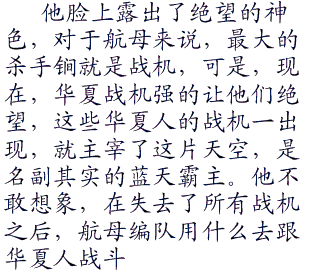 他脸上露出了绝望的神
色，对于航母来说，最大的
杀手锏就是战机，可是，现
在，华夏战机强的让他们绝
望，这些华夏人的战机一出
现，就主宰了这片天空，是
名副其实的蓝天霸主。他不
敢想象，在失去了所有战机
之后，航母编队用什么去跟
华夏人战斗